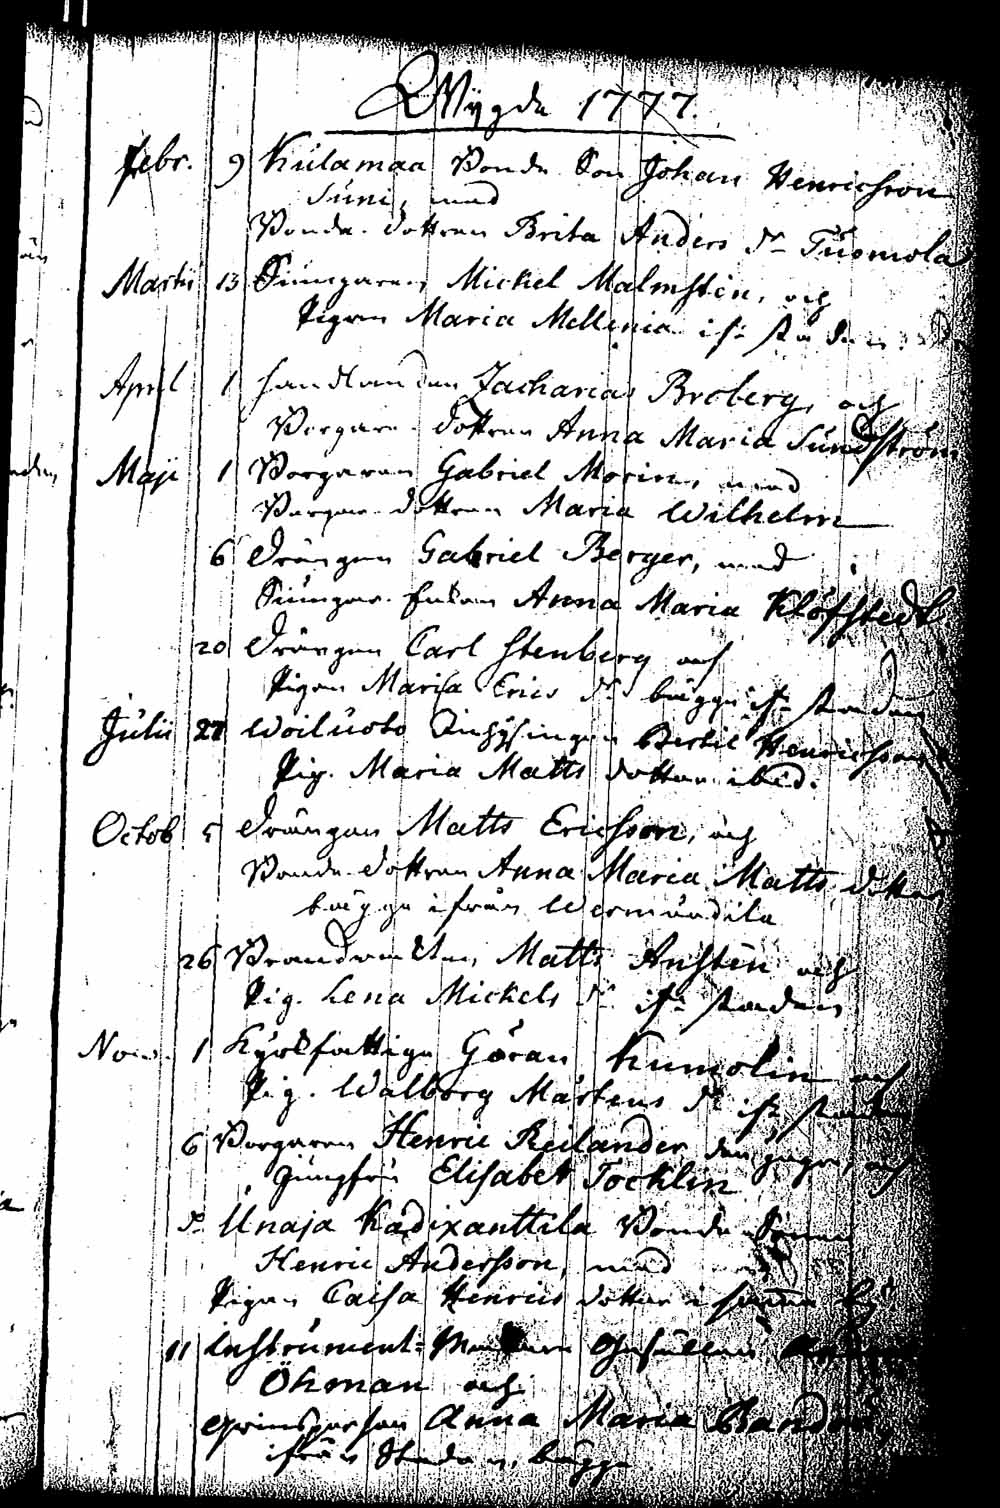 Wygde 1777.
Febr. 9 Kulamaa Bonde Son Johan Henricsson
Suni, med
Bonde dottren Brita Anders dr Tuomola
Martii 13 Siungaren Mickel Malmsten, och
Pigan Maria Mellenia ifr staden
April 1 Handlanden Zacharias Broberg, och
Borgare dottren Anna Maria Sundström
Maji 1 Borgaren Gabriel Morin, med
Borgare dottren Maria Wilhelm
6 Drängen Gabriel Berger, med
Anna Maria Klöfstedt
20 Drängen Carl Stenberg och
Pigan Maria Erics dr bägge ifr staden
Julii 27 Woiluoto Inhysingen Bertil Henricsson
Pig. Maria Matts dotter ibid.
Octob 5 Drängen Matts Ericsson, och
Bonde dottren Anna Maria Matts dotter
bägge ifrån Wermundila
26 Brandvackten Matts Ansten och
Pig. Lena Mickels dr ifr staden
Nov. 1 Kyrkfattige Göran Kumolin och
Pig. Walborg Mårtens dr ifr staden
6 Borgaren Henric Reilander den yngre, och
Jungfru Elisabet Töcklin
d. Unaja Kadixanttila Bonde Sonen
Henric Andersson, med
Pigan Caisa Henrics dotter i samma by
11 Instrument-Makare Gesällen
Öhman och
Qvinspersonen Anna Maria
ifrån Staden, bägge